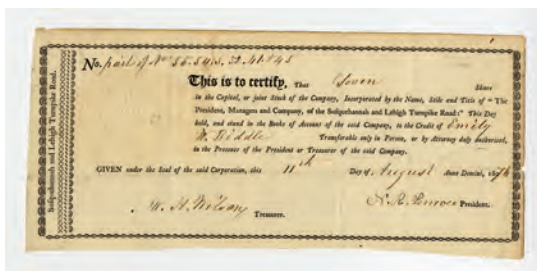 No. part of Nos 56.54
This is to certify, That Seven Share
in the Capital, or joint Stock of the Company, Incorporated by the Name, Stile and Title of "The
President, Managers and Company, of the Susquehannah and Lehigh Turnpike Road:" This Day
held, and stand in the Books of Account of the said Company, to the Credit of Emily
W. Biddle Transferable only in Person, or by Attorney duly authorised,
in the Presence of the President or Treasurer of the said Company.
GIVEN under the Seal of the said Corporation, this 11th Day of August Anno Domini, 18
W. H. Wilson Treasurer. President.
Susquehannah and Lehigh Turnpike Road.